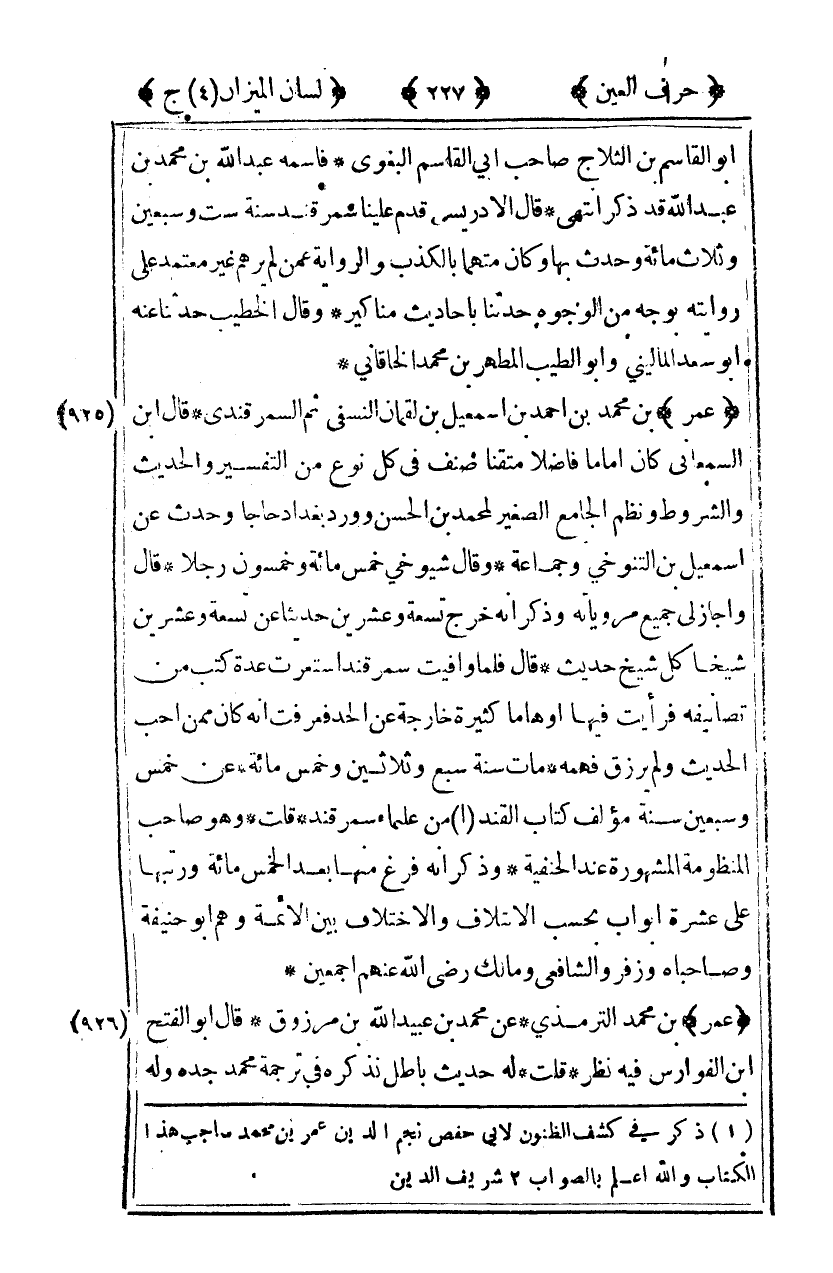 ﴿ حرف العين ﴾ ﴿ ٢٢٧ ﴾ ﴿ لسان الميزان (٤) ج ﴾
ابو القاسم بن الثلاج صاحب ابي القاسم البغوى * فاسمه عبد الله بن محمد بن
عبد الله قد ذكر انتهى * قال الادريسى قدم علينا سمرقند سنة ست وسبعين
وثلاث مائة وحدث بها وكان متهما بالكذب والرواية عمن لم يرهم غير معتمد على
روايته بوجه من الوجوه حدثنا باحاديث مناكير * وقال الخطيب حدثنا عنه
ابو سعد الماليني وابو الطيب المطهر بن محمد الخاقاني *
﴿ عمر ﴾ بن محمد بن احمد بن اسمعيل بن لقمان النسفى ثم السمرقندى * قال ابن (٩٢٥)
السمعانى كان اماما فاضلا متقنا صنف فى كل نوع من التفسير والحديث
والشروط ونظم الجامع الصغير لمحمد بن الحسن وورد بغداد حاجا وحدث عن
اسمعيل بن التنوخي وجماعة * وقال شيوخي خمس مائة وخمسون رجلا * قال
واجاز لى جميع مروياته وذكر انه خرج تسعة وعشرين حديثا عن تسعة وعشرين
شيخا كل شيخ حديث * قال فلما وافيت سمرقند استعرت عدة كتب من
تصانيفه فرأيت فيها اوهاما كثيرة خارجة عن الحد فعرفت انه كان ممن احب
الحديث ولم يرزق فهمه * مات سنة سبع وثلاثين وخمس مائة * عن خمس
وسبعين سنة مؤلف كتاب القند (١) من علماء سمرقند * قلت * وهو صاحب
المنظومة المشهورة عند الحنفية * وذكر انه فرغ منها بعد الخمس مائة ورتبها
على عشرة ابواب بحسب الائتلاف والاختلاف بين الائمة وهم ابو حنيفة
وصاحباه وزفر والشافعى ومالك رضى الله عنهم اجمعين *
﴿ عمر ﴾ بن محمد الترمذي * عن محمد بن عبيد الله بن مرزوق * قال ابو الفتح (٩٢٦)
ابن الفوارس فيه نظر * قلت * له حديث باطل نذكره في ترجمة محمد جده وله
(١) ذكر في كشف الظنون لابي حفص نجم الدين عمر بن محمد صاحب هذا
الكتاب والله اعلم بالصواب ٢ شريف الدين